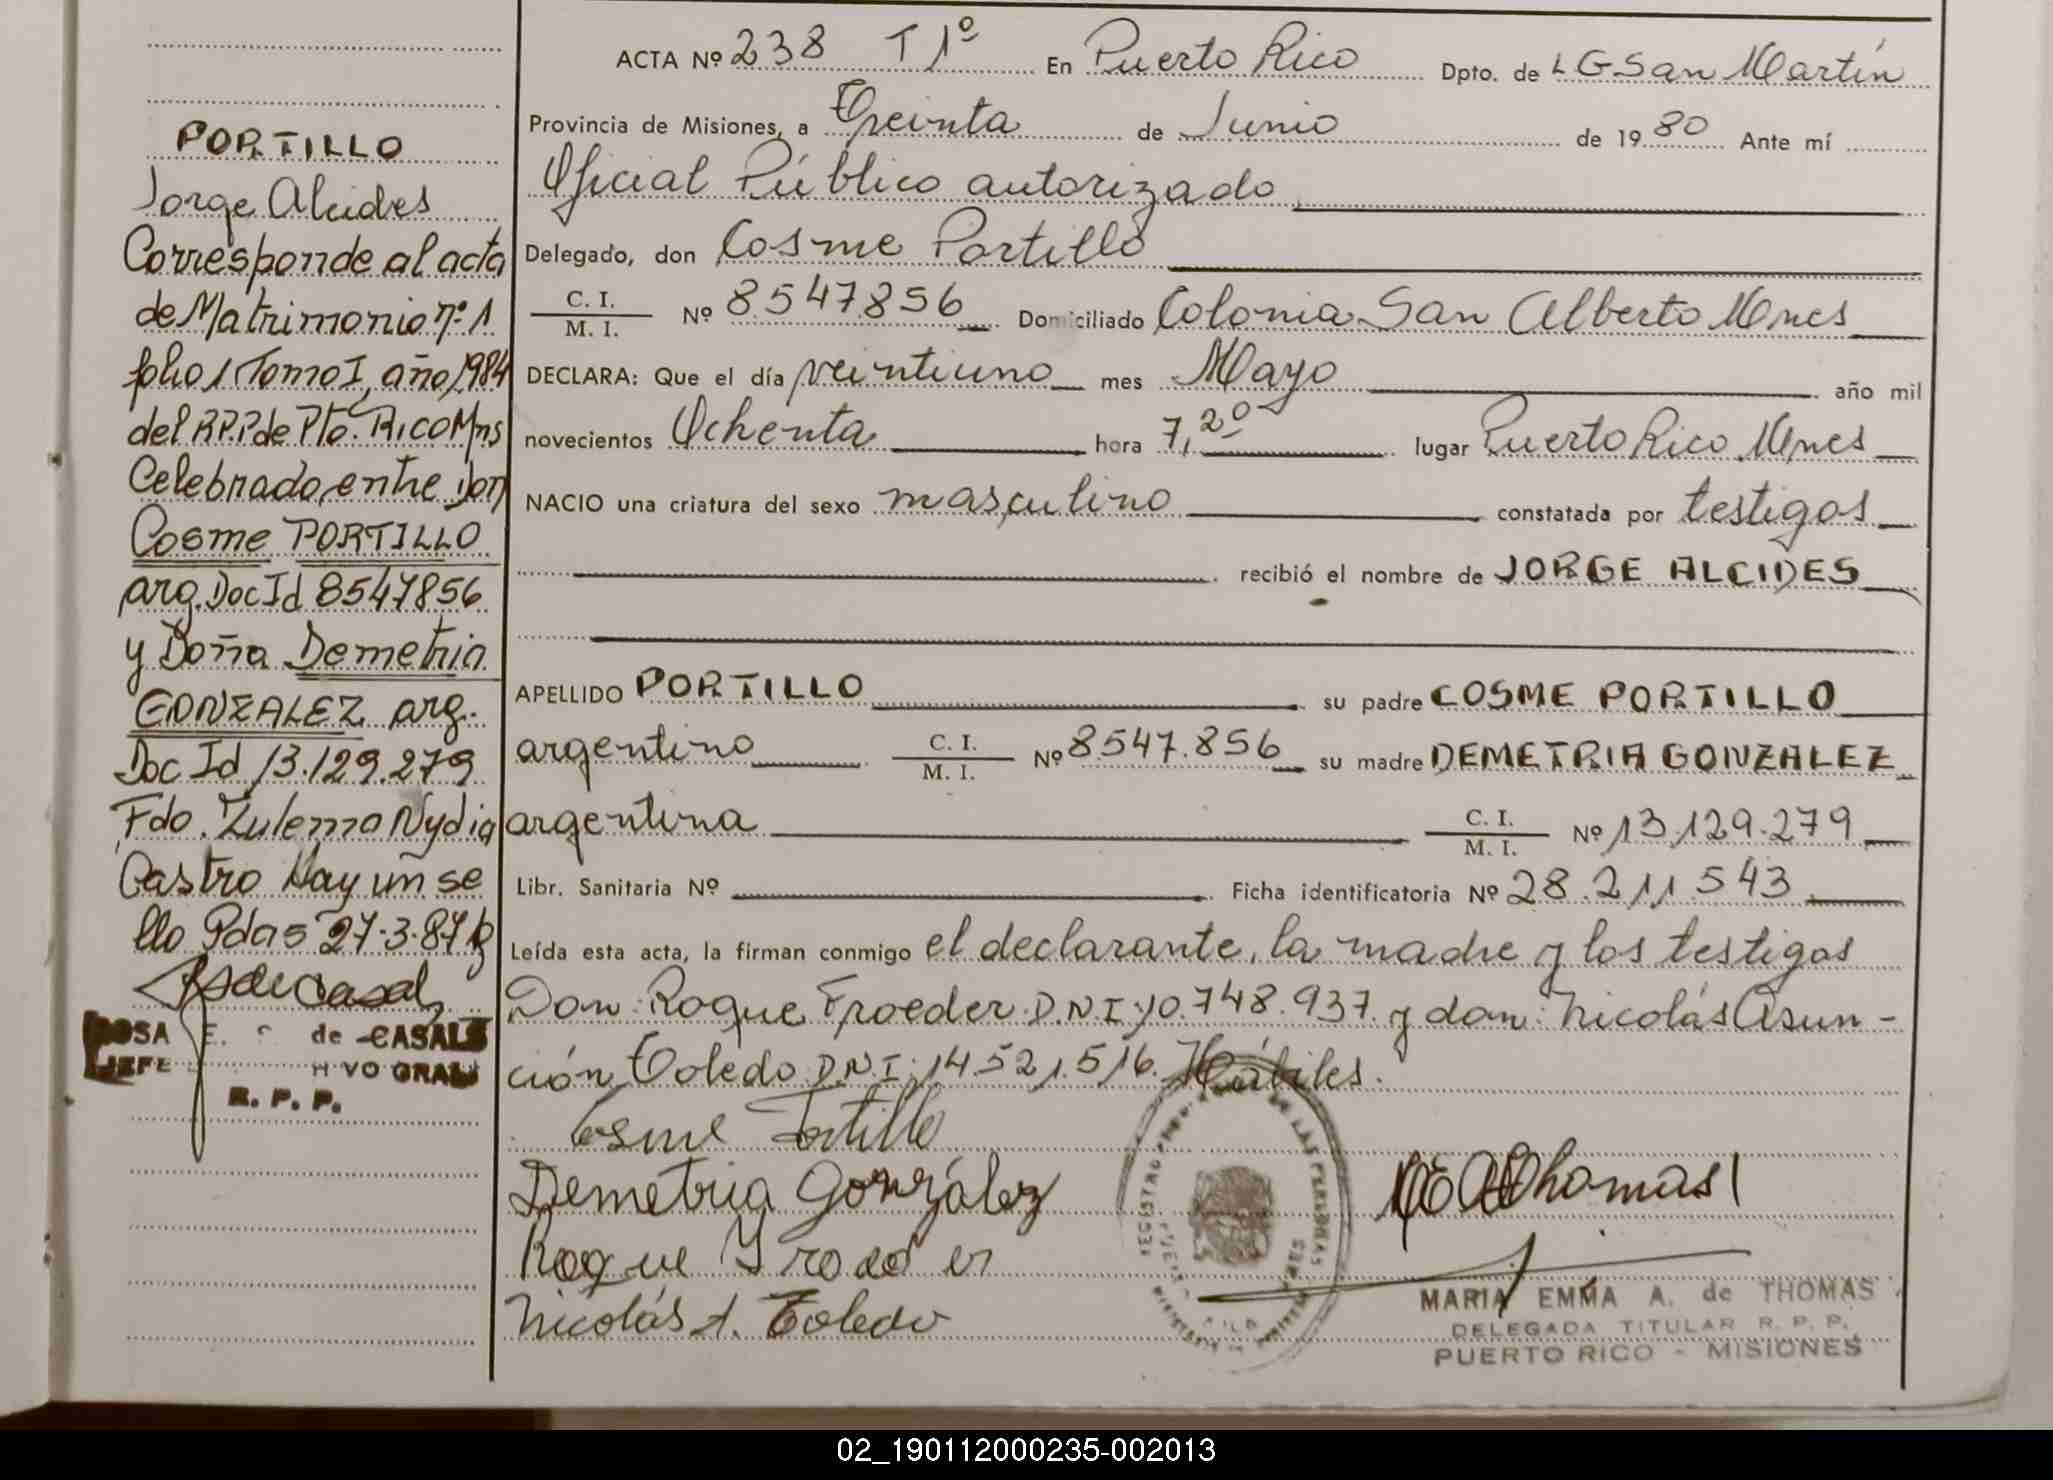 PORTILLO
Jorge Alcides
Corresponde al acta
de Matrimonio nº 1
folio 1 Tomo I, año 1984
del R.P.P de Pto. Rico Mns
Celebrado entre Don
Cosme PORTILLO
arg. Doc Id 8547856
y Doña Demetria
GONZALEZ arg.
Doc Id 13.129.279
Fdo. Zulema Nydia
Castro Hay un se
llo Pdas 27-3-87
ROSA E. de CASALS
JEFE VO GRAL
R. P. P.
ACTA Nº 238 T 1º En Puerto Rico Dpto. de L G San Martín
Provincia de Misiones, a Treinta de Junio de 19 80 Ante mí
Oficial Público autorizado
Delegado, don Cosme Portillo
C. I.
M. I. Nº 8547856 Domiciliado Colonia San Alberto Mnes
DECLARA: Que el día veintiuno mes Mayo año mil
novecientos Ochenta hora 7,20 lugar Puerto Rico Mnes
NACIO una criatura del sexo masculino constatada por testigos
recibió el nombre de JORGE ALCIDES
APELLIDO PORTILLO su padre COSME PORTILLO
argentino C. I. M. I. Nº 8547.856 su madre DEMETRIA GONZALEZ
argentina C. I. M. I. Nº 13.129.279
Libr. Sanitaria Nº Ficha identificatoria Nº 28.211.543
Leída esta acta, la firman conmigo el declarante, la madre y los testigos
Don: Roque Froeder D.N.I. 10.748.937 y don: Nicolás Asun-
ción Toledo D.N.I. 14.521.516. Hábiles.
Cosme Portillo
Demetria González
Roque Froeder
Nicolás A. Toledo
MARIA EMMA A. de THOMAS
DELEGADA TITULAR R. P. P.
PUERTO RICO - MISIONES
02_190112000235-002013